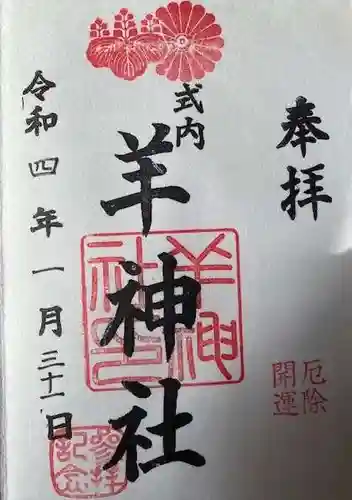 奉拝
厄除
開運
式内
羊神社
羊神
社印
令和四年一月三十一日
参拝
記念